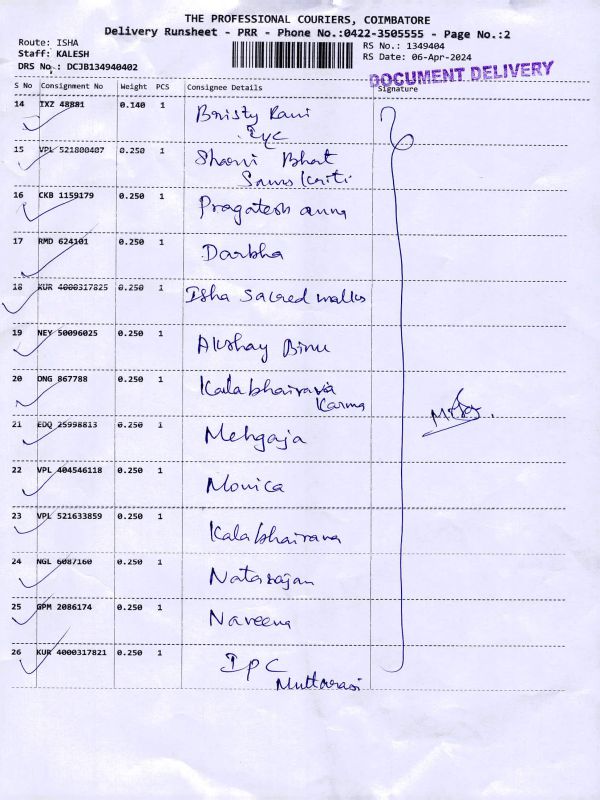 THE PROFESSIONAL COURIERS, COIMBATORE
Delivery Runsheet - PRR - Phone No.:0422-3505555 - Page No.:2
Route: ISHA
Staff: KALESH
DRS No.: DCJB134940402
RS No.: 1349404
RS Date: 06-Apr-2024
DOCUMENT DELIVERY
S No Consignment No Weight PCS Consignee Details Signature
14 IXZ 48881 0.140 1 Bristy Rani
15 VPL 521800407 0.250 1 Shaoni Bhat
16 CKB 1159179 0.250 1 Pragatesh anna
17 RMD 624101 0.250 1 Darbha
18 KUR 4000317825 0.250 1 Isha Sacred walks
19 NEY 50096025 0.250 1 Akshay Binu
20 DNG 867788 0.250 1 Kalabhairava
Karma
21 EDQ 25998813 0.250 1 Mehgaja
22 VPL 404546118 0.250 1 Monica
23 VPL 521633859 0.250 1 Kalabhairava
24 NGL 6087160 0.250 1 Natarajan
25 GPM 2086174 0.250 1 Naveena
26 KUR 4000317821 0.250 1 IPC
Muttarasi